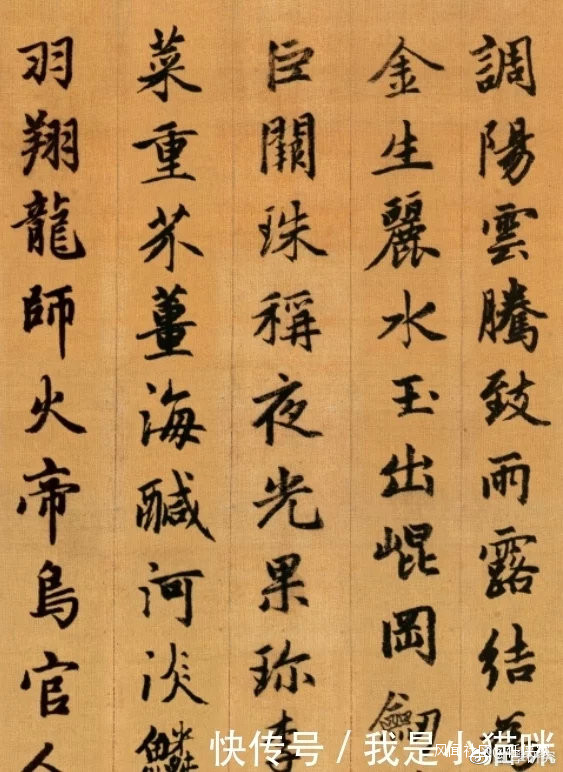 調陽雲騰致雨露結為
金生麗水玉出崐岡劒
巨闕珠稱夜光果珍李
菜重芥薑海醎河淡鱗
羽翔龍師火帝鳥官人
快传号 / 我是小猫咪